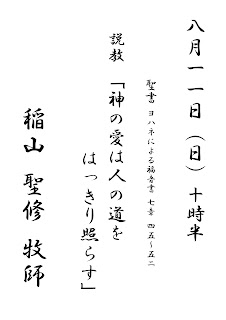 八月一一日（日）十時半
聖書 ヨハネによる福音書 七章 四五～五二
説教 「神の愛は人の道を
はっきり照らす」
稲山 聖修 牧師